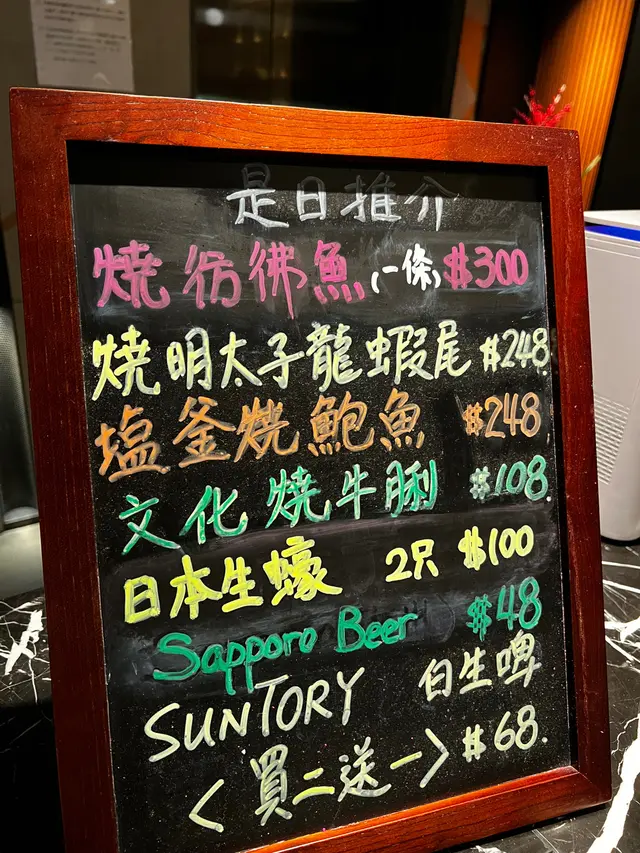 是日推介
燒彷彿魚(一條) $300
燒明太子龍蝦尾 $248
塩釜燒鮑魚 $248
文化燒牛脷 $108
日本生蠔 2只 $100
Sapporo Beer $48
SUNTORY 白生啤
<買二送一> $68